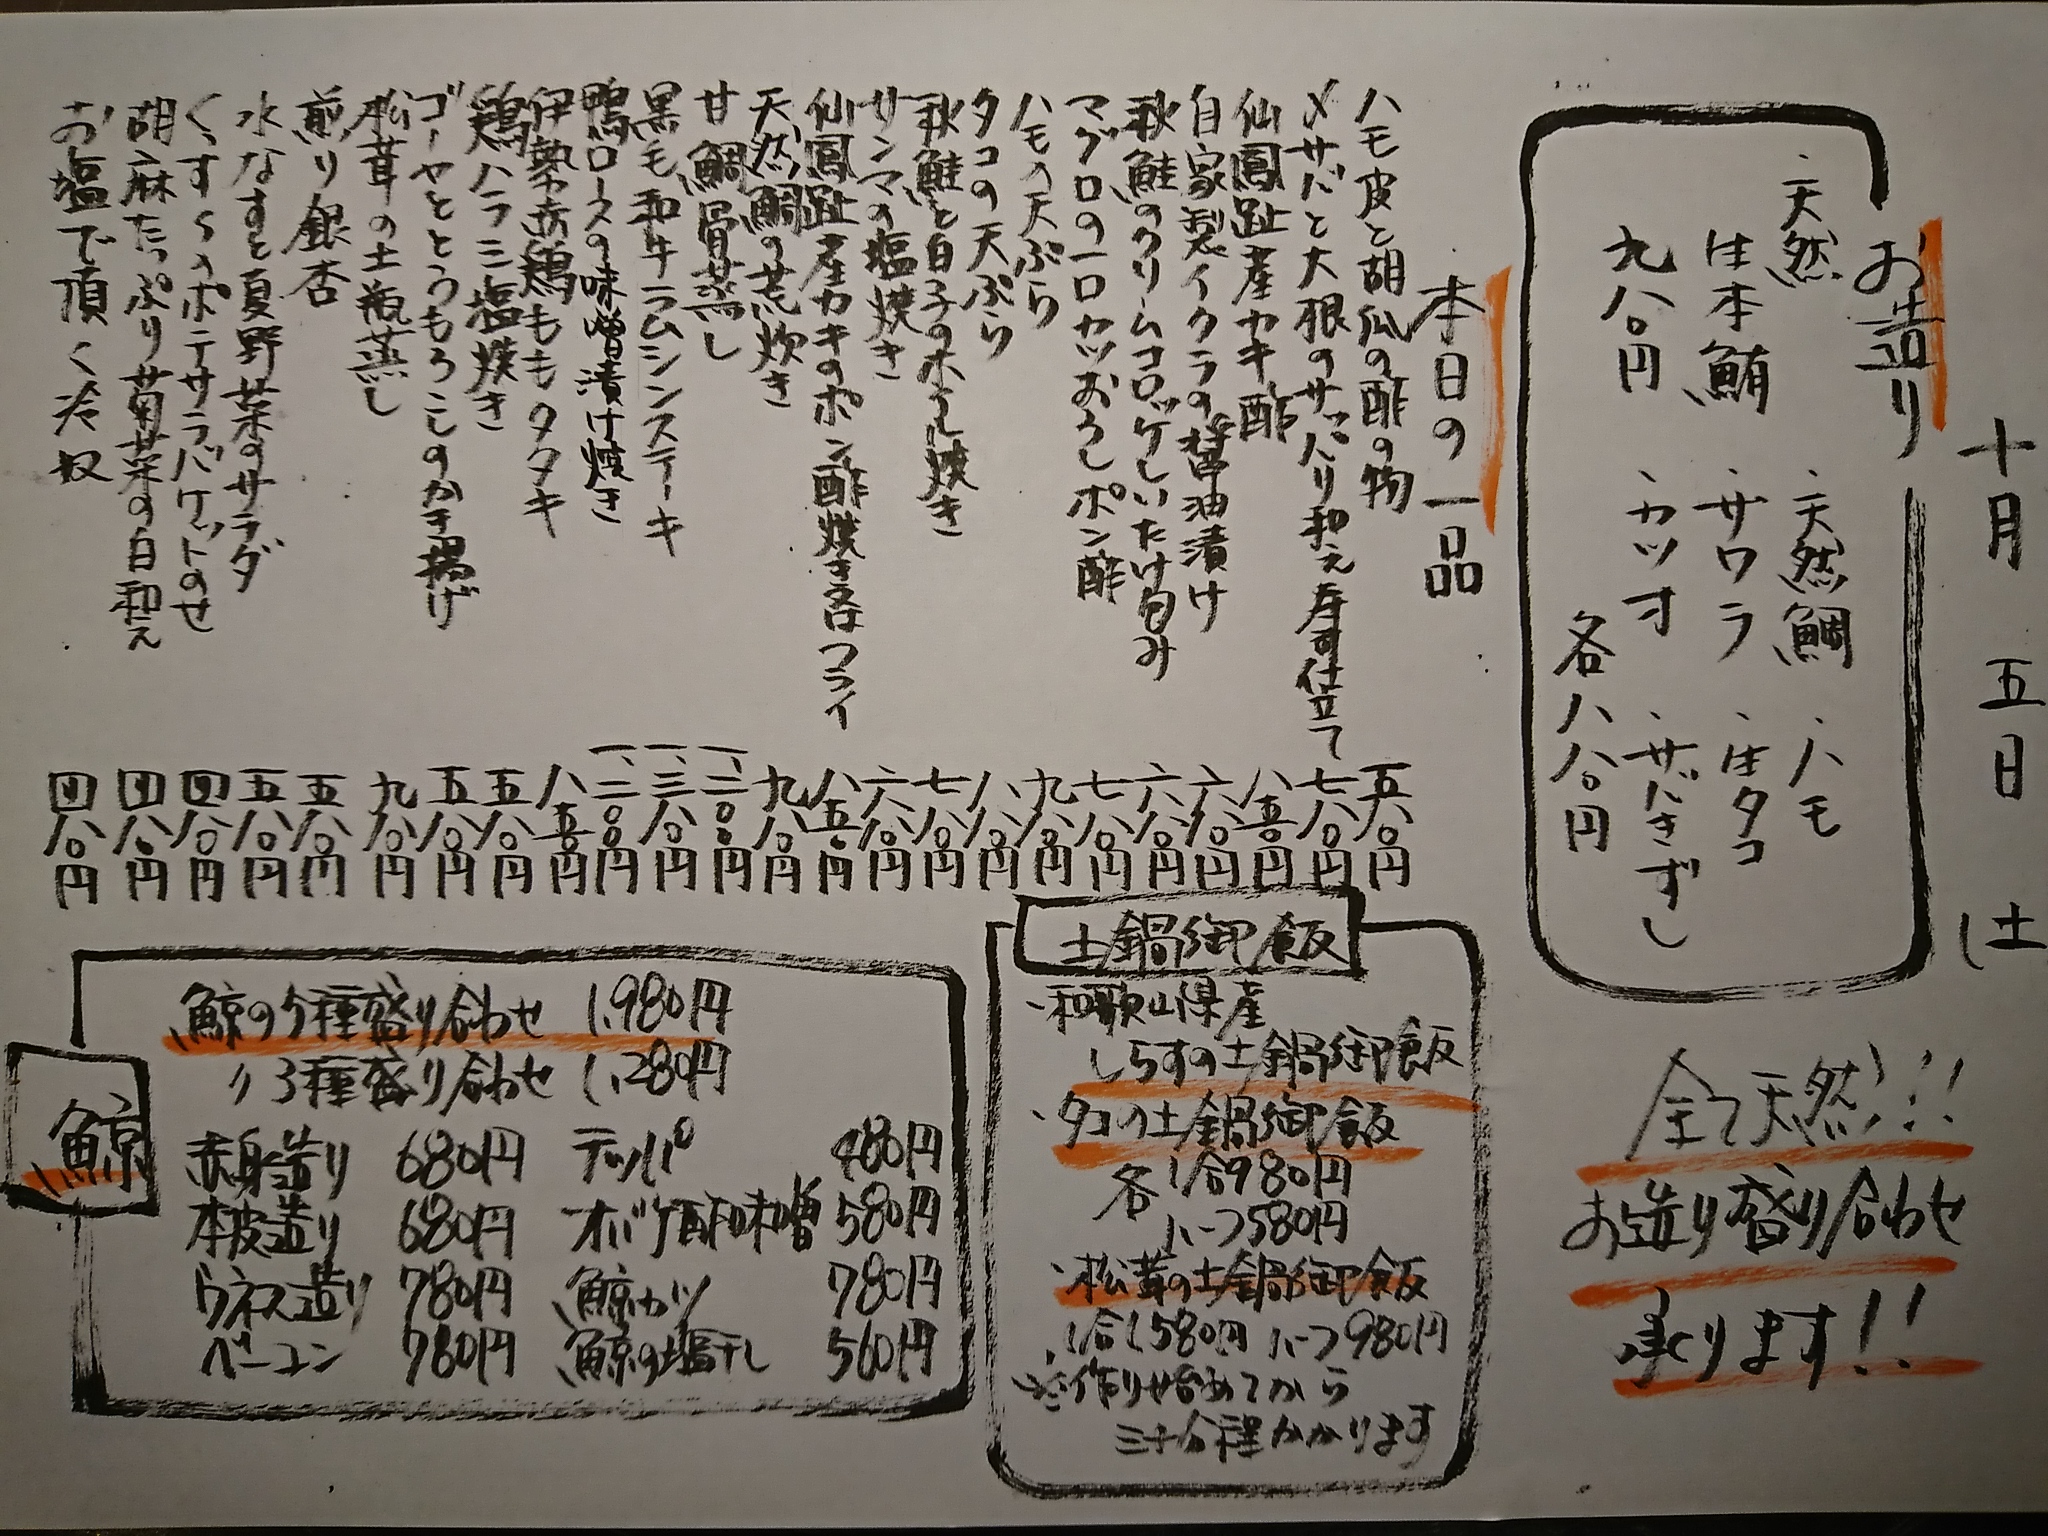 十月 五日 (土)
お造り
・天然 ・天然鯛 ・ハモ
生本鮪 ・サワラ ・生タコ
九八〇円 ・カツオ ・サバきずし
各八八〇円
全て天然!!!
お造り盛り合わせ
承ります!!
本日の一品
ハモ皮と胡瓜の酢の物 五八〇円
〆サバと大根のサッパリ和え寿司仕立て 七八〇円
仙鳳趾産カキ酢 八五〇円
自家製イクラの醤油漬け 六八〇円
秋鮭のクリームコロッケしいたけ包み 六八〇円
マグロの一口カツおろしポン酢 七八〇円
ハモの天ぷら 九八〇円
タコの天ぷら 八八〇円
秋鮭と白子のホイル焼き 七八〇円
サンマの塩焼き 六八〇円
仙鳳趾産カキのポン酢焼き又はフライ 八五〇円
天然鯛の荒炊き 九八〇円
甘鯛骨蒸し 一、二〇〇円
黒毛和牛ラムシンステーキ 一、三八〇円
鴨ロースの味噌漬け焼き 一、二〇〇円
伊勢赤鶏ももタタキ 八五〇円
鶏ハラミ塩焼き 五八〇円
ゴーヤととうもろこしのかき揚げ 五八〇円
松茸の土瓶蒸し 九八〇円
煎り銀杏 五八〇円
水なすと夏野菜のサラダ 五八〇円
くずくずポテサラバケットのせ 四八〇円
胡麻たっぷり菊菜の白和え 四八〇円
お塩で頂く冷奴 四八〇円
土鍋御飯
・和歌山県産
しらすの土鍋御飯
・タコの土鍋御飯
各 1合980円
ハーフ580円
・松茸の土鍋御飯
1合1,580円 ハーフ980円
※作り始めてから
三十分程かかります
鯨
鯨の5種盛り合わせ 1,980円
〃3種盛り合わせ 1,280円
赤身造り 680円 テッパ 480円
本皮造り 680円 オバケ酢味噌 580円
ウネス造り 780円 鯨カツ 780円
ベーコン 780円 鯨の塩干し 560円